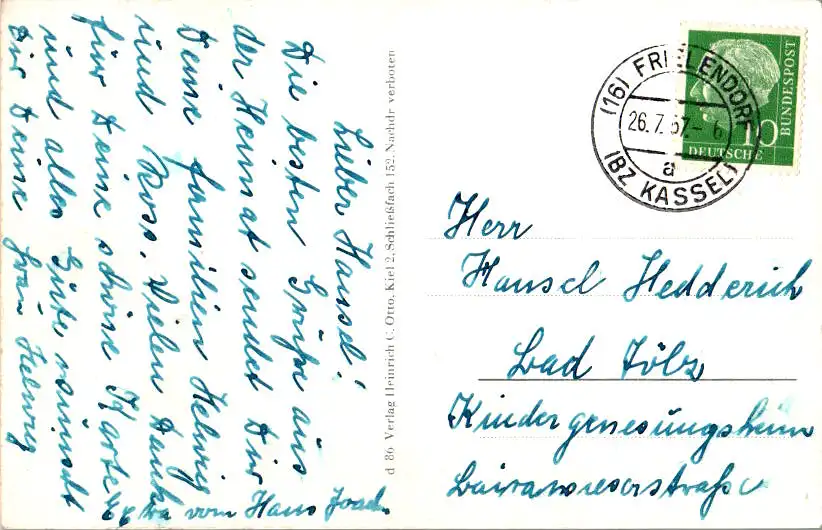 Lieber Hansel!
Die besten Grüße aus
der Heimat sendet Dir
Deine Familien Helwig
und Ross. Vielen Dank
für Deine schöne Karte
und alles Gute wünscht
Dir Deine Frau Helwig
vom Hans Joach.
d 86 Verlag Heinrich C. Otto, Kiel 2, Schließfach 152. Nachdr. verboten
(16) FRIELENDORF
26.7.57.- 6
a
(BZ KASSEL)
10
DEUTSCHE BUNDESPOST
Herr
Hansel Hedderich
Bad Tölz
Kindergenesungsheim